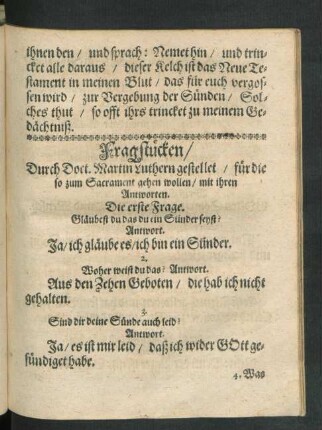 ihnen den / und sprach: Nemet hin / und trin-
cket alle daraus / dieser Kelch ist das Neue Te-
stament in meinen Blut / das für euch vergos-
sen wird / zur Vergebung der Sünden / Sol-
ches thut / so offt ihrs trincket zu meinem Ge-
dächtniß.
Fragstücken /
Durch Doct. Martin Luthern gestellet / für die
so zum Sacrament gehen wollen / mit ihren
Antworten.
Die erste Frage.
Gläubest du das du ein Sünder seyst?
Antwort.
Ja / ich gläube es / ich bin ein Sünder.
2.
Woher weist du das? Antwort.
Aus den Zehen Geboten / die hab ich nicht
gehalten.
3.
Sind dir deine Sünde auch leid?
Antwort.
Ja / es ist mir leid / daß ich wider GOtt ge-
sündiget habe.
4. Was